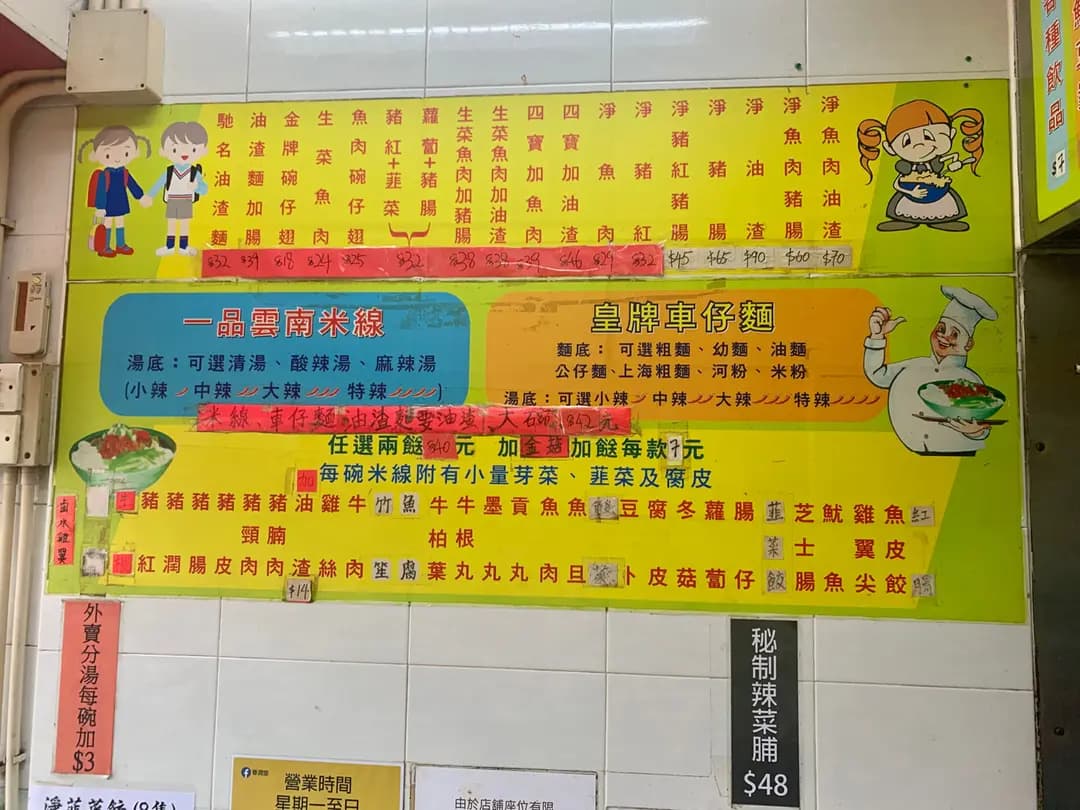 馳名油渣麵 $32
油渣麵加腸 $39
金牌碗仔翅 $18
生菜魚肉 $24
魚肉碗仔翅 $25
豬紅+韮菜 $32
蘿蔔+豬腸
生菜魚肉加豬腸 $38
生菜魚肉加油渣 $38
四寶加魚肉 $39
四寶加油渣 $46
淨魚肉 $29
淨豬紅 $32
淨豬紅豬腸 $45
淨豬腸 $65
淨油渣 $90
淨魚肉豬腸 $60
淨魚肉油渣 $70
各種飲品
$7
一品雲南米線
湯底：可選清湯、酸辣湯、麻辣湯
(小辣 中辣 大辣 特辣)
皇牌車仔麵
麵底： 可選粗麵、幼麵、油麵
公仔麵、上海粗麵、河粉、米粉
湯底：可選小辣 中辣 大辣 特辣
米線、車仔麵 油渣麵要油渣、大 $42元
任選兩餸$40元 加金菇加餸每款7元
加每碗米線附有小量芽菜、韮菜及腐皮
鹵水雞翼
豬紅
豬潤
豬腸
豬皮
豬頸肉
豬腩肉
油渣
$14
雞絲
牛肉
竹笙
魚腐
牛柏葉
牛根丸
墨丸
貢丸
魚肉
魚旦
豆卜
腐皮
冬菇
蘿蔔
腸仔
韮菜餃
芝士腸
魷魚
雞翼尖
魚皮餃
紅腸
外賣分湯每碗加
$3
秘制辣菜脯
$48
營業時間
星期一至日
由於店舖座位有限